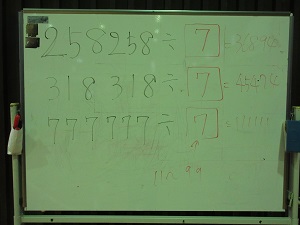 258258÷7=36894
318 318÷7=
777777÷7=111111